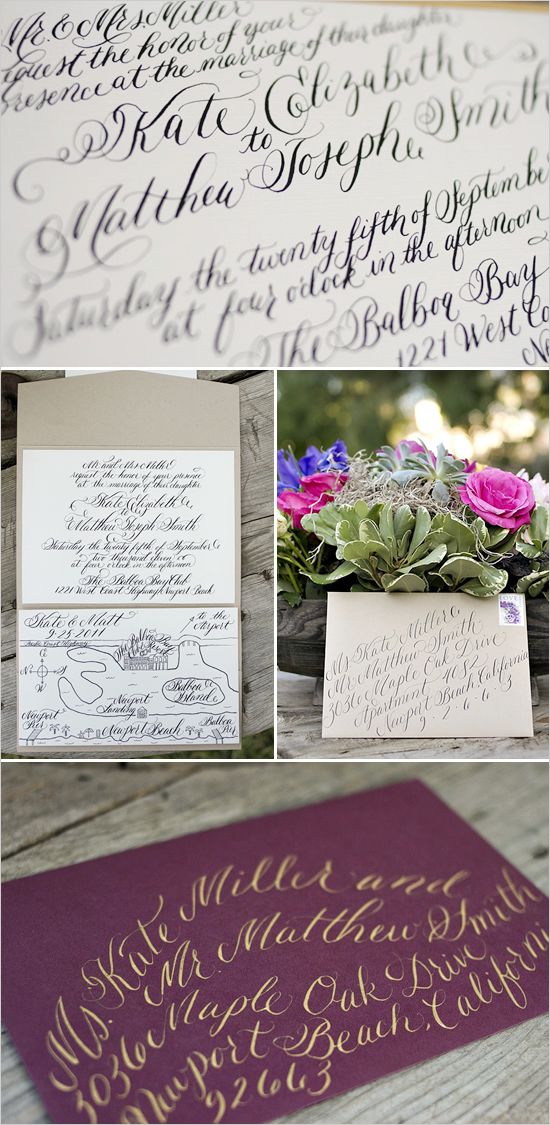 Mr. & Mrs. Miller
request the honor of your
presence at the marriage of their daughter
Kate Elizabeth
to
Matthew Joseph Smith
Saturday the twenty fifth of September
at four o'clock in the afternoon
The Balboa Bay
1221 West Co
Ne
Mr. and Mrs. Miller
request the honor of your
presence at the
marriage of their daughter
Kate Elizabeth
to
Matthew Joseph Smith
Saturday the twenty fifth of September
two thousand eleven
at four o'clock in the afternoon
The Balboa Bay Club
1221 West Coast Highway Newport Beach
Kate & Matt
9-25-2011
to the
Airport
Pacific Coast Highway
The Balboa Bay
Club
N
S
Balboa
Island
Newport
Landing
Newport
Pier
Newport Beach
Balboa
Pier
LOVE
Ms. Kate Miller &
Mr. Matthew Smith
3036 Maple Oak Drive
Apartment 403
Newport Beach California
9·2·6·6·3
Ms. Kate Miller and
Mr. Matthew Smith
3036 Maple Oak Drive
Newport Beach, California
92663